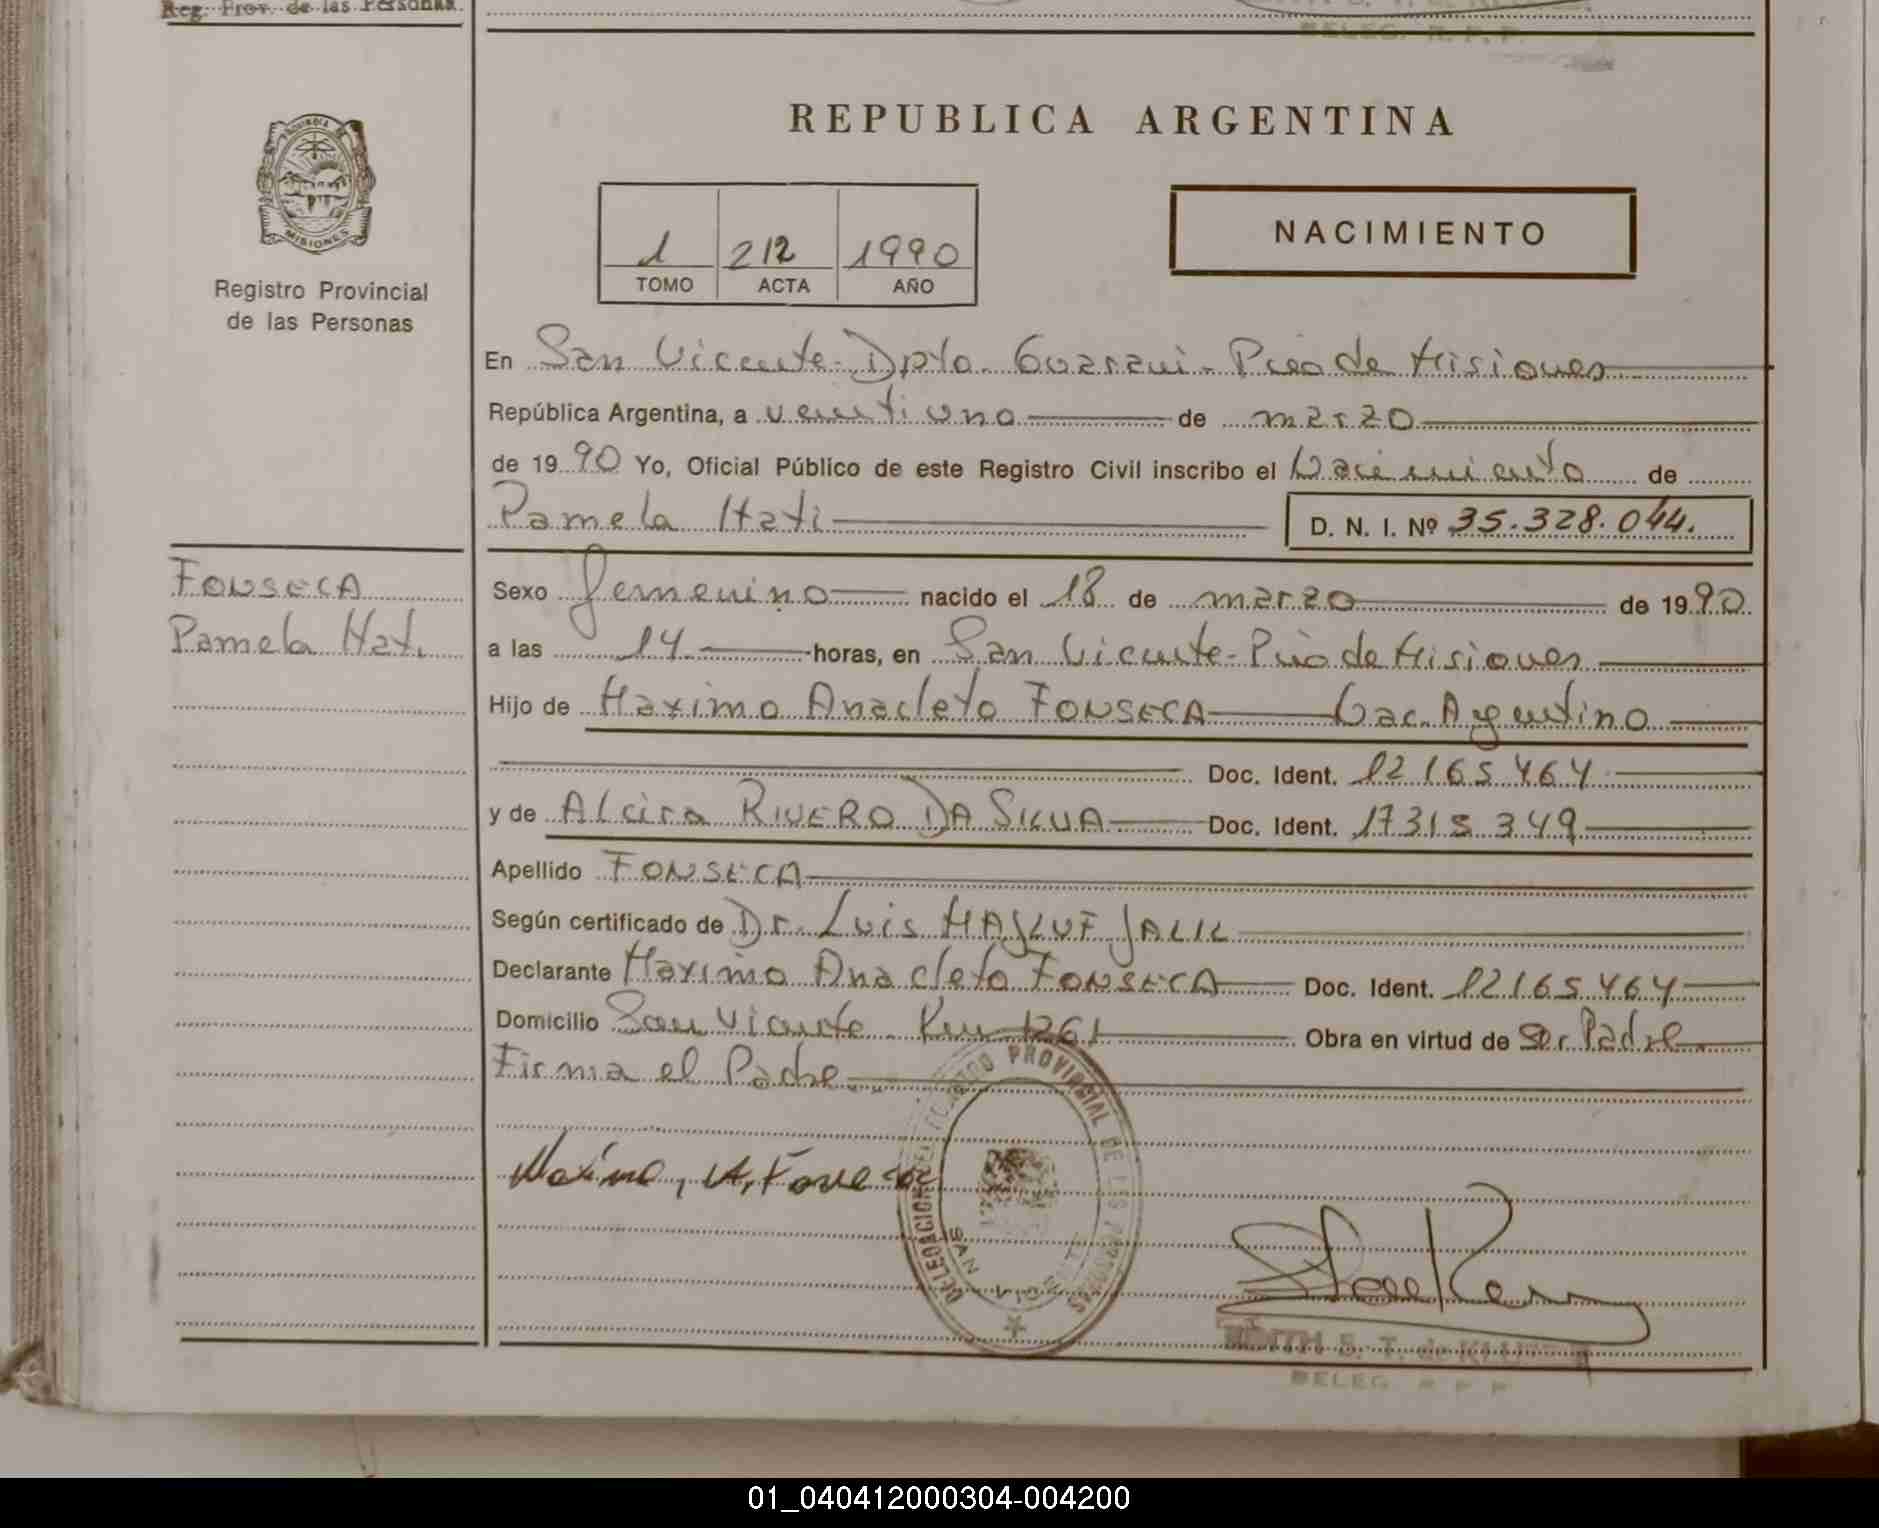 Reg. Prov. de las Personas.
DELEG. R. P. P.
REPUBLICA ARGENTINA
PROVINCIA DE
MISIONES
Registro Provincial
de las Personas
1 212 1990
TOMO ACTA AÑO
NACIMIENTO
En San Vicente- Dpto. Guarani- Pcia de Misiones
República Argentina, a veintiuno de marzo
de 1990 Yo, Oficial Público de este Registro Civil inscribo el Nacimiento de
Pamela Itati D. N. I. Nº 35.328.044.
FONSECA
Pamela Itati
Sexo femenino nacido el 18 de marzo de 1990
a las 14 horas, en San Vicente- Pcia de Misiones
Hijo de Maximo Anacleto FONSECA Nac. Argentino
Doc. Ident. 12165464
y de Alcira RIVERO DA SILVA Doc. Ident. 17315349
Apellido FONSECA
Según certificado de Dr. Luis MASLUF JALIL
Declarante Maximo Anacleto FONSECA Doc. Ident. 12165464
Domicilio San Vicente- Km 1261 Obra en virtud de Ser Padre
Firma el Padre
Maximo, A, Fonseca
DELEGACION DEL REGISTRO PROVINCIAL DE LAS PERSONAS
SAN VICENTE
EDITH S. T. de
DELEG. R. P. P.
01_040412000304-004200